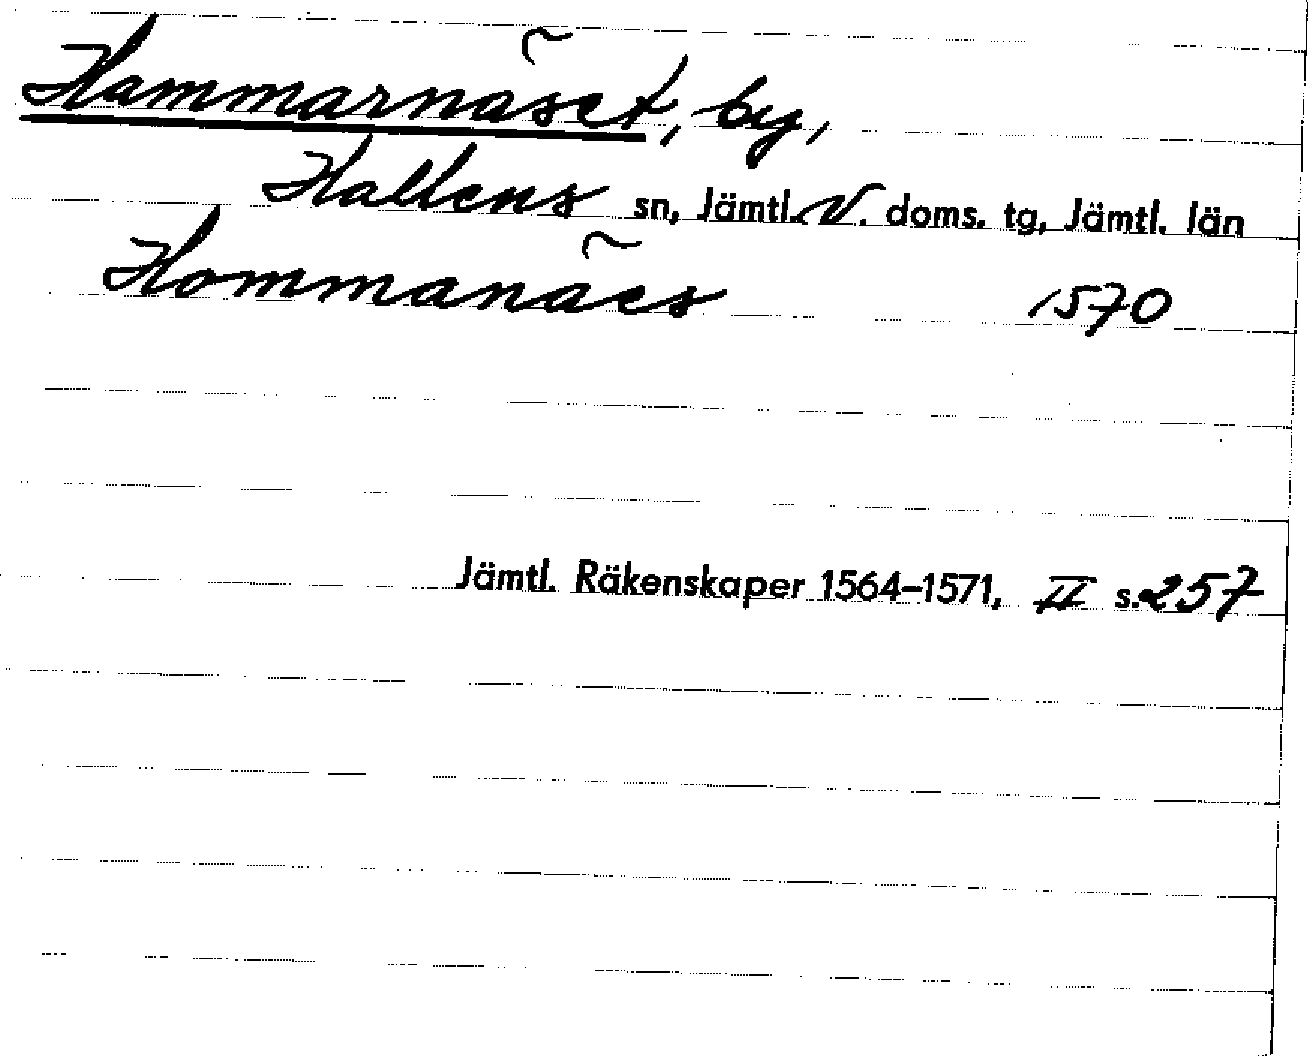 Hammarnäset, by,
Hallens sn, Jämtl. V. doms. tg, Jämtl. län
Hommanäes 1570
Jämtl. Räkenskaper 1564–1571, II s. 257